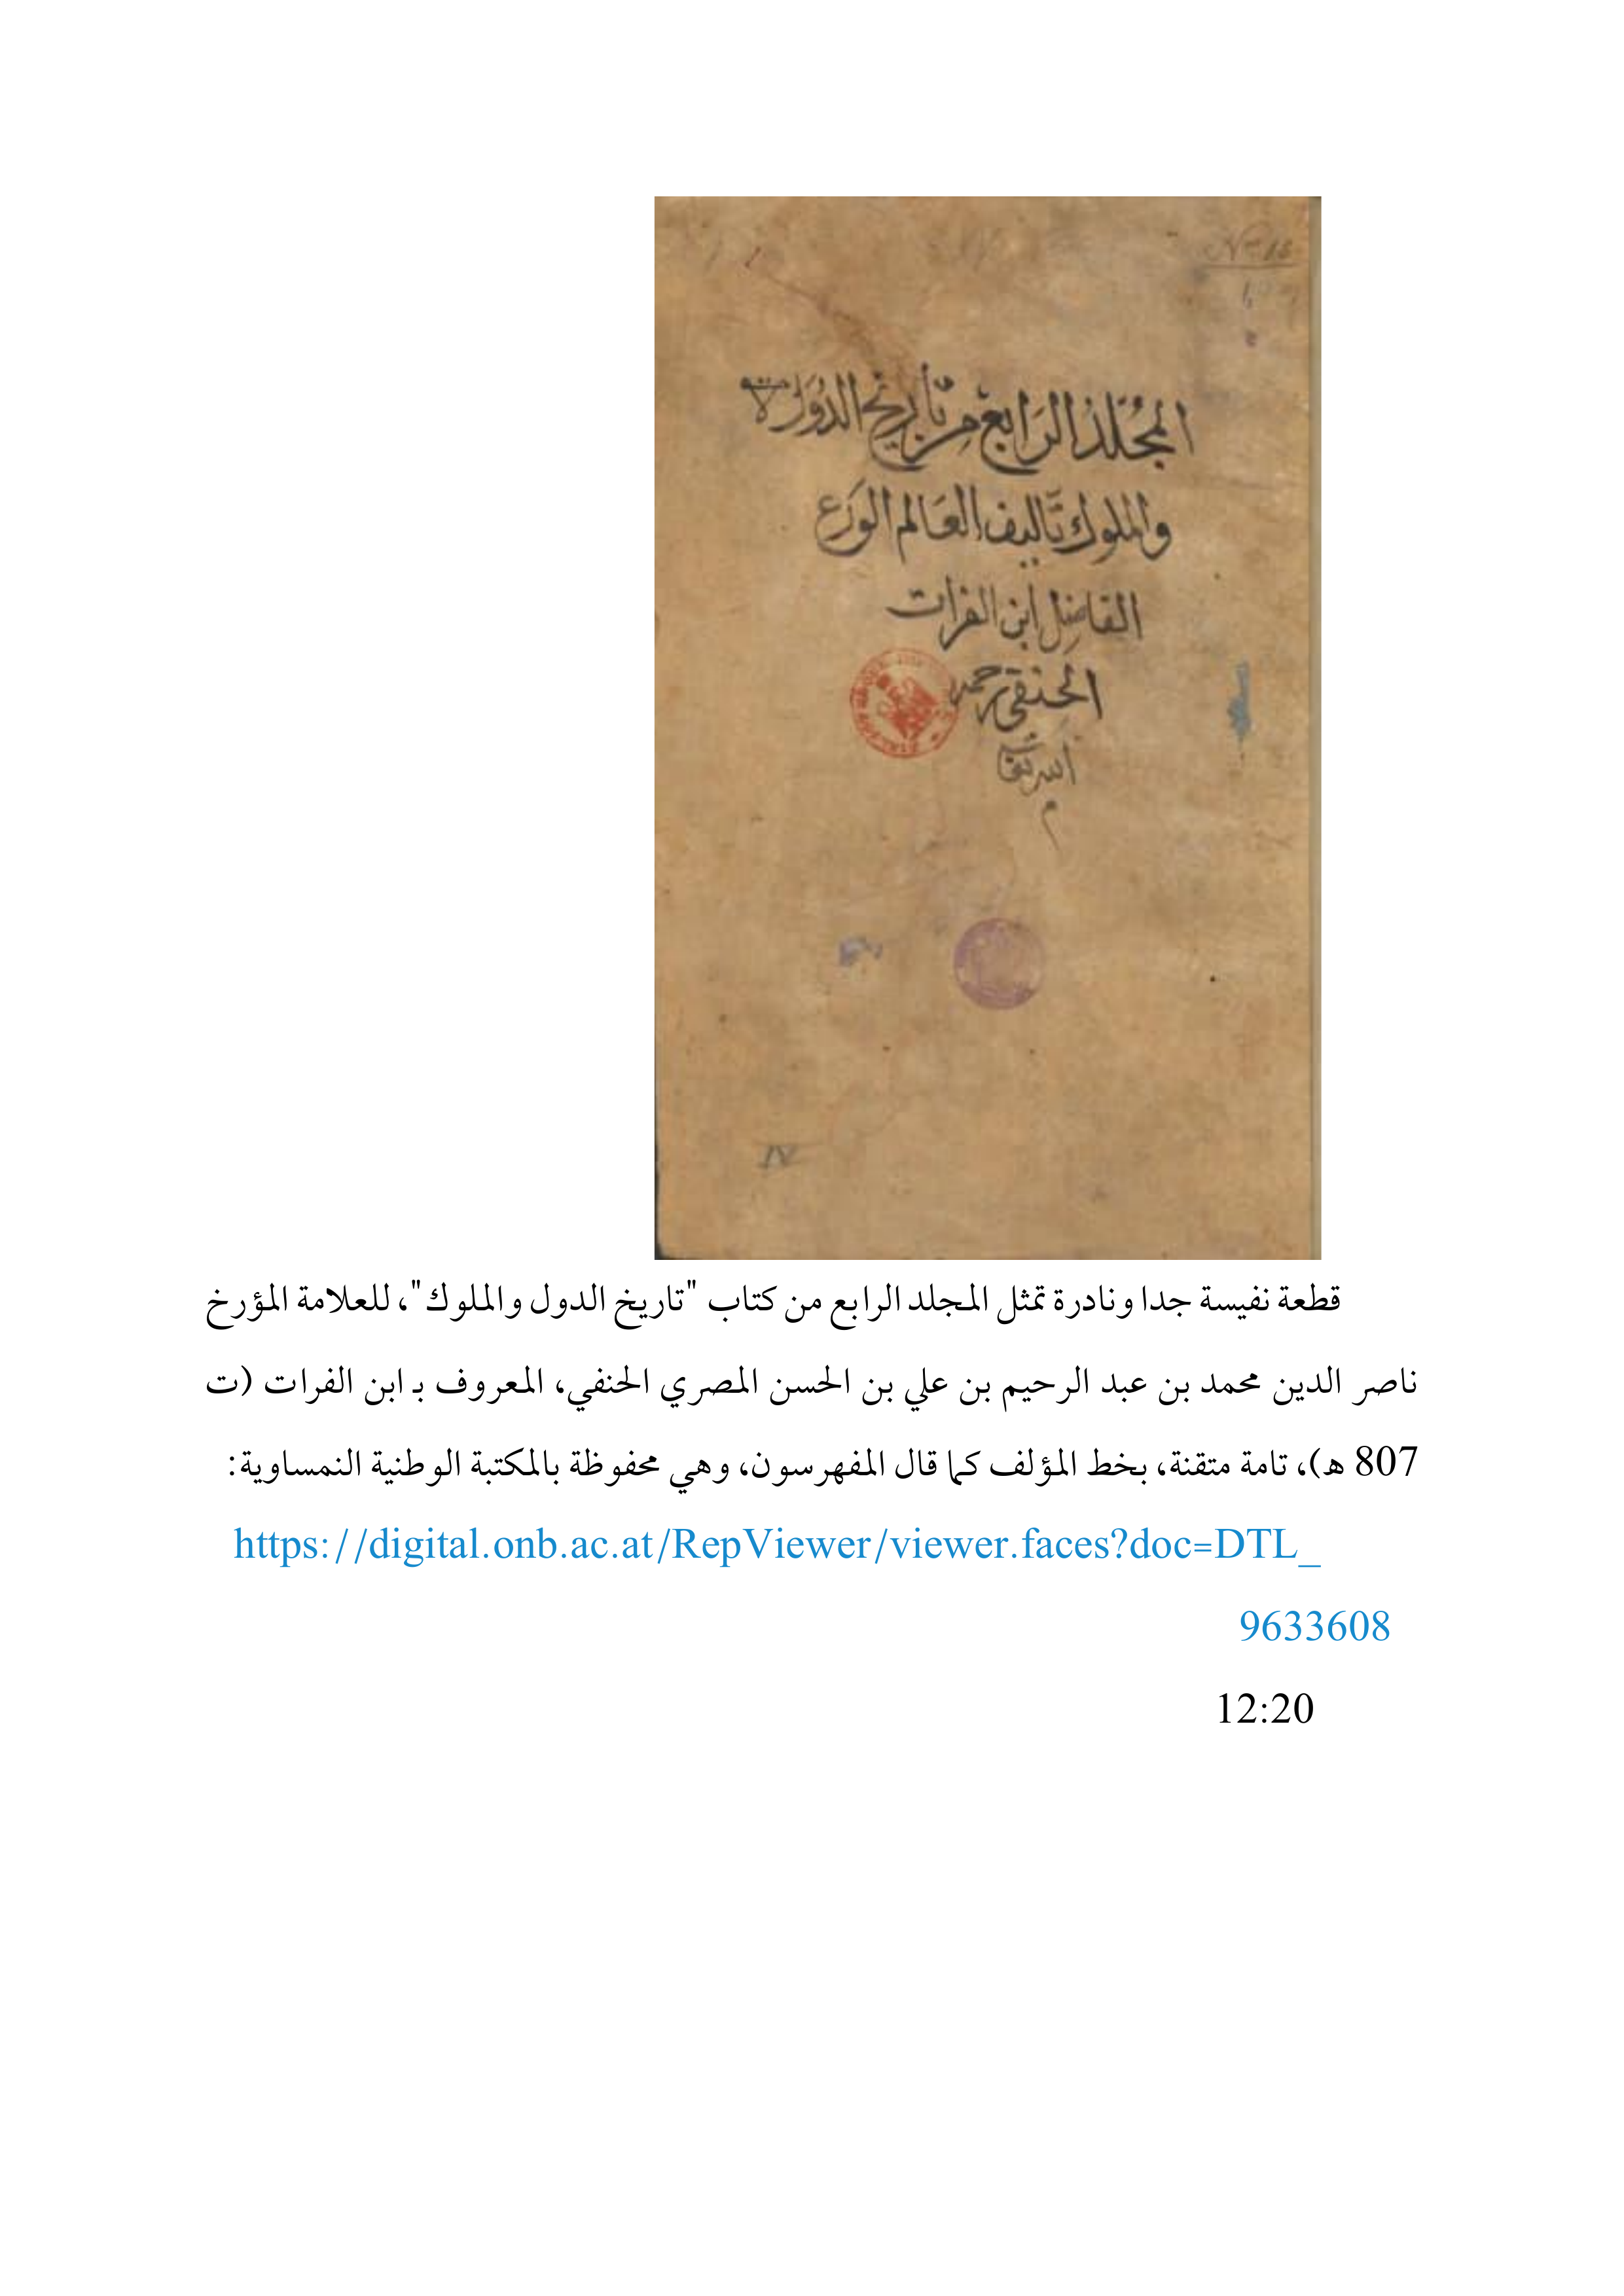 Nr. 13
المجلد الرابع من تأريخ الدول
والملوك تأليف العالم الورع
الفاضل ابن الفرات
الحنفي رحمه
الله تعالى
م
IV
قطعة نفيسة جدا ونادرة تمثل المجلد الرابع من كتاب "تاريخ الدول والملوك"، للعلامة المؤرخ
ناصر الدين محمد بن عبد الرحيم بن علي بن الحسن المصري الحنفي، المعروف بـ ابن الفرات (ت
807 هـ)، تامة متقنة، بخط المؤلف كما قال المفهرسون، وهي محفوظة بالمكتبة الوطنية النمساوية:
https://digital.onb.ac.at/RepViewer/viewer.faces?doc=DTL_
9633608
12:20